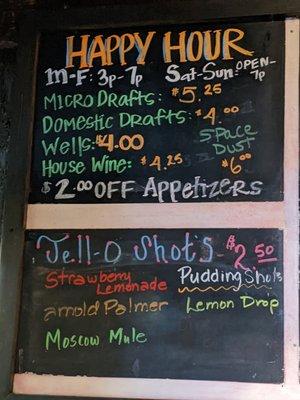 HAPPY HOUR
M-F: 3p-7p SAT-SUN: OPEN-7p
MICRO DRAFTS: $5.25
DOMESTIC DRAFTS: $4.00
WELLS: $4.00 SPACE DUST
HOUSE WINE: $4.25 $6.00
$2.00 OFF APPETIZERS
Jell-O Shot's $2.50
Strawberry Lemonade Pudding Shots
Arnold Palmer Lemon Drop
Moscow Mule